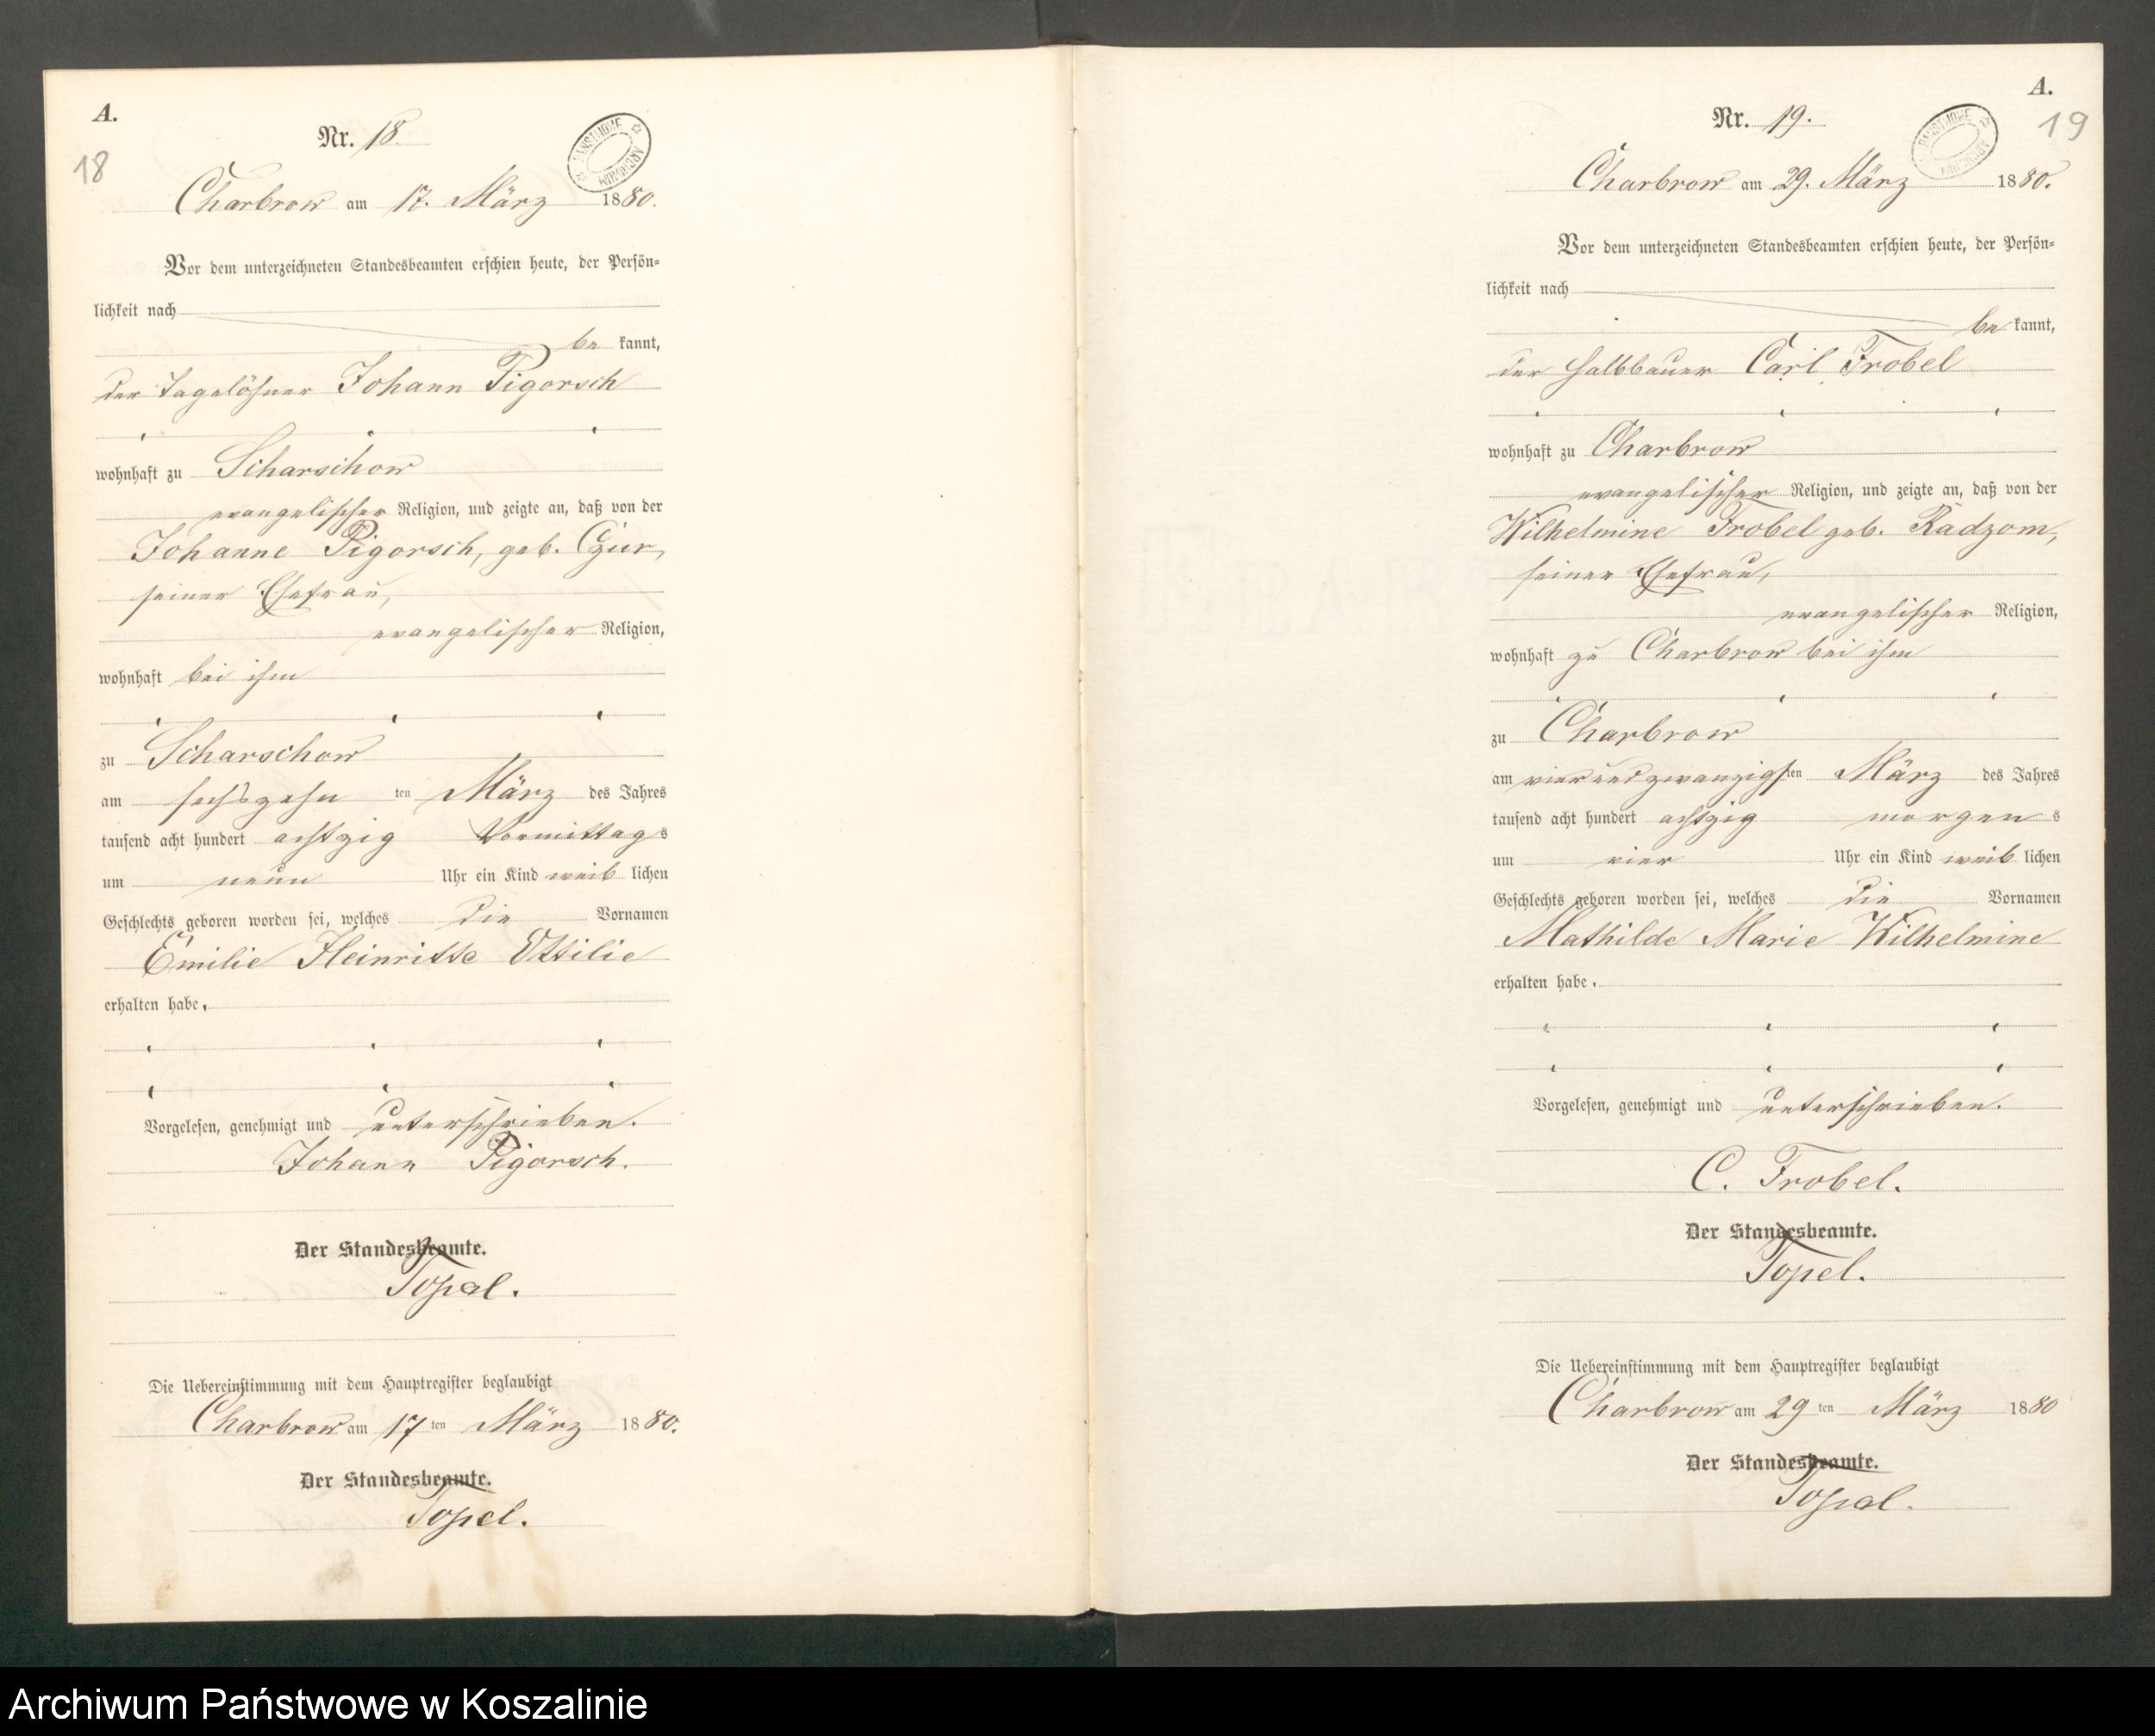 A.
18
Nr. 18.
Charbrow am 17. März 1880.
Vor dem unterzeichneten Standesbeamten erschien heute, der Persön=
lichkeit nach
be kannt,
der Tagelöhner Johann Pigorsch
wohnhaft zu Scharschow
evangelischer Religion, und zeigte an, daß von der
Johanne Pigorsch, geb. Czur,
seiner Ehefrau,
evangelischer Religion,
wohnhaft bei ihm
zu Scharschow
am sechszehn ten März des Jahres
tausend acht hundert achtzig Vormittag s
um neun Uhr ein Kind weib lichen
Geschlechts geboren worden sei, welches die Vornamen
Emilie Heinritte Ottilie
erhalten habe.
Vorgelesen, genehmigt und unterschrieben.
Johann Pigorsch.
Der Standesbeamte.
Topel.
Die Uebereinstimmung mit dem Hauptregister beglaubigt
Charbrow am 17 ten März 1880.
Der Standesbeamte.
Topel.
A.
19
Nr. 19.
Charbrow am 29. März 1880.
Vor dem unterzeichneten Standesbeamten erschien heute, der Persön=
lichkeit nach
be kannt,
der Halbbauer Carl Trobel
wohnhaft zu Charbrow
evangelischer Religion, und zeigte an, daß von der
Wilhelmine Trobel geb. Radzom,
seiner Ehefrau,
evangelischer Religion,
wohnhaft zu Charbrow bei ihm
zu Charbrow
am vierundzwanzigsten März des Jahres
tausend acht hundert achtzig morgen s
um vier Uhr ein Kind weib lichen
Geschlechts geboren worden sei, welches die Vornamen
Mathilde Marie Wilhelmine
erhalten habe.
Vorgelesen, genehmigt und unterschrieben.
C. Trobel.
Der Standesbeamte.
Topel.
Die Uebereinstimmung mit dem Hauptregister beglaubigt
Charbrow am 29 ten März 1880
Der Standesbeamte.
Topel.
Archiwum Państwowe w Koszalinie